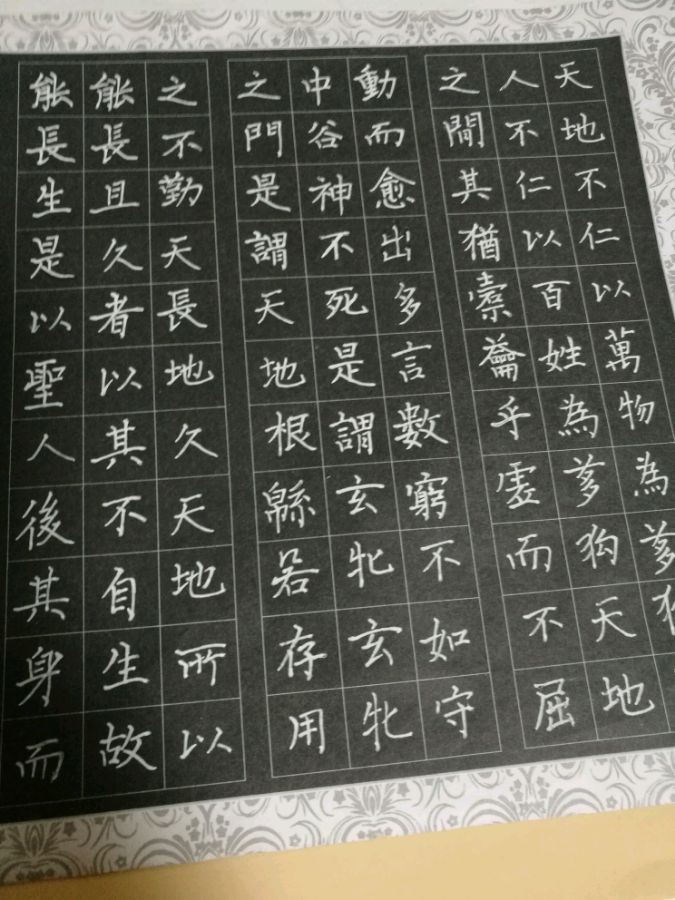 天地不仁以萬物為芻狗
人不仁以百姓為芻狗天地
之間其猶橐籥乎虛而不屈
動而愈出多言數窮不如守
中谷神不死是謂玄牝玄牝
之門是謂天地根緜若存用
之不勤天長地久天地所以
能長且久者以其不自生故
能長生是以聖人後其身而